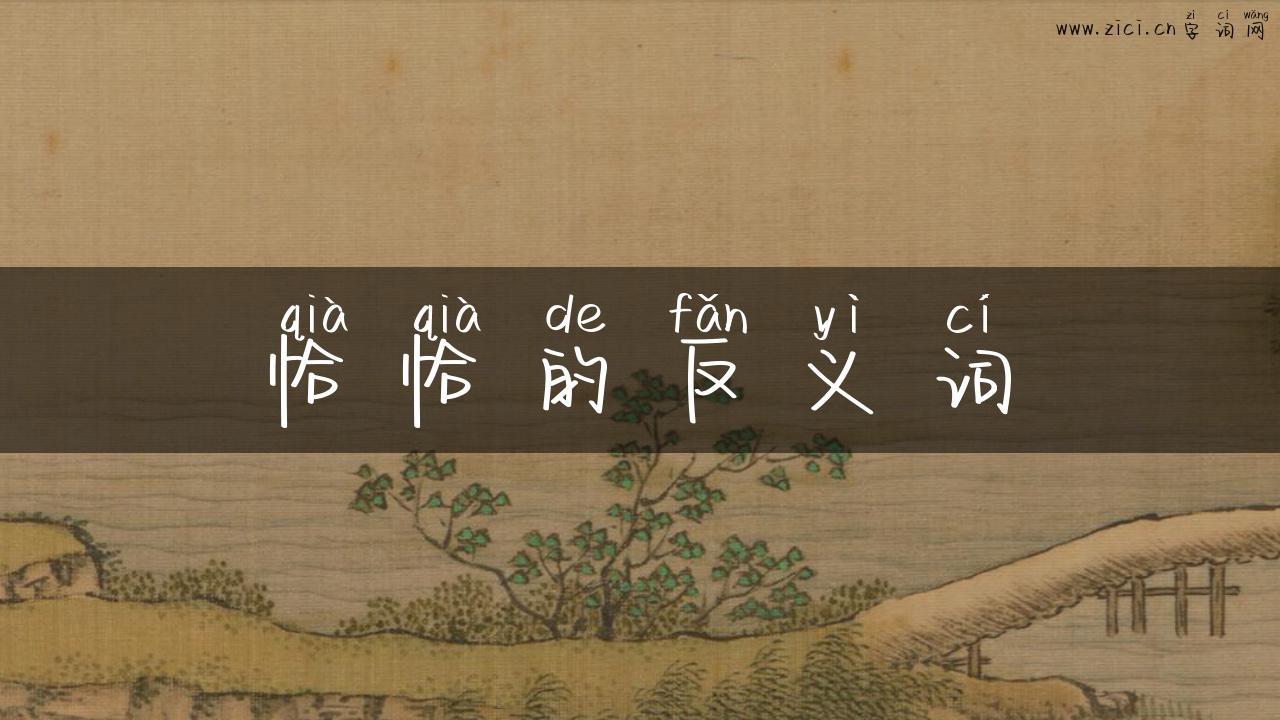 zì cí wǎng
www.zici.cn 字词网
qià qià de fǎn yì cí
恰恰的反义词